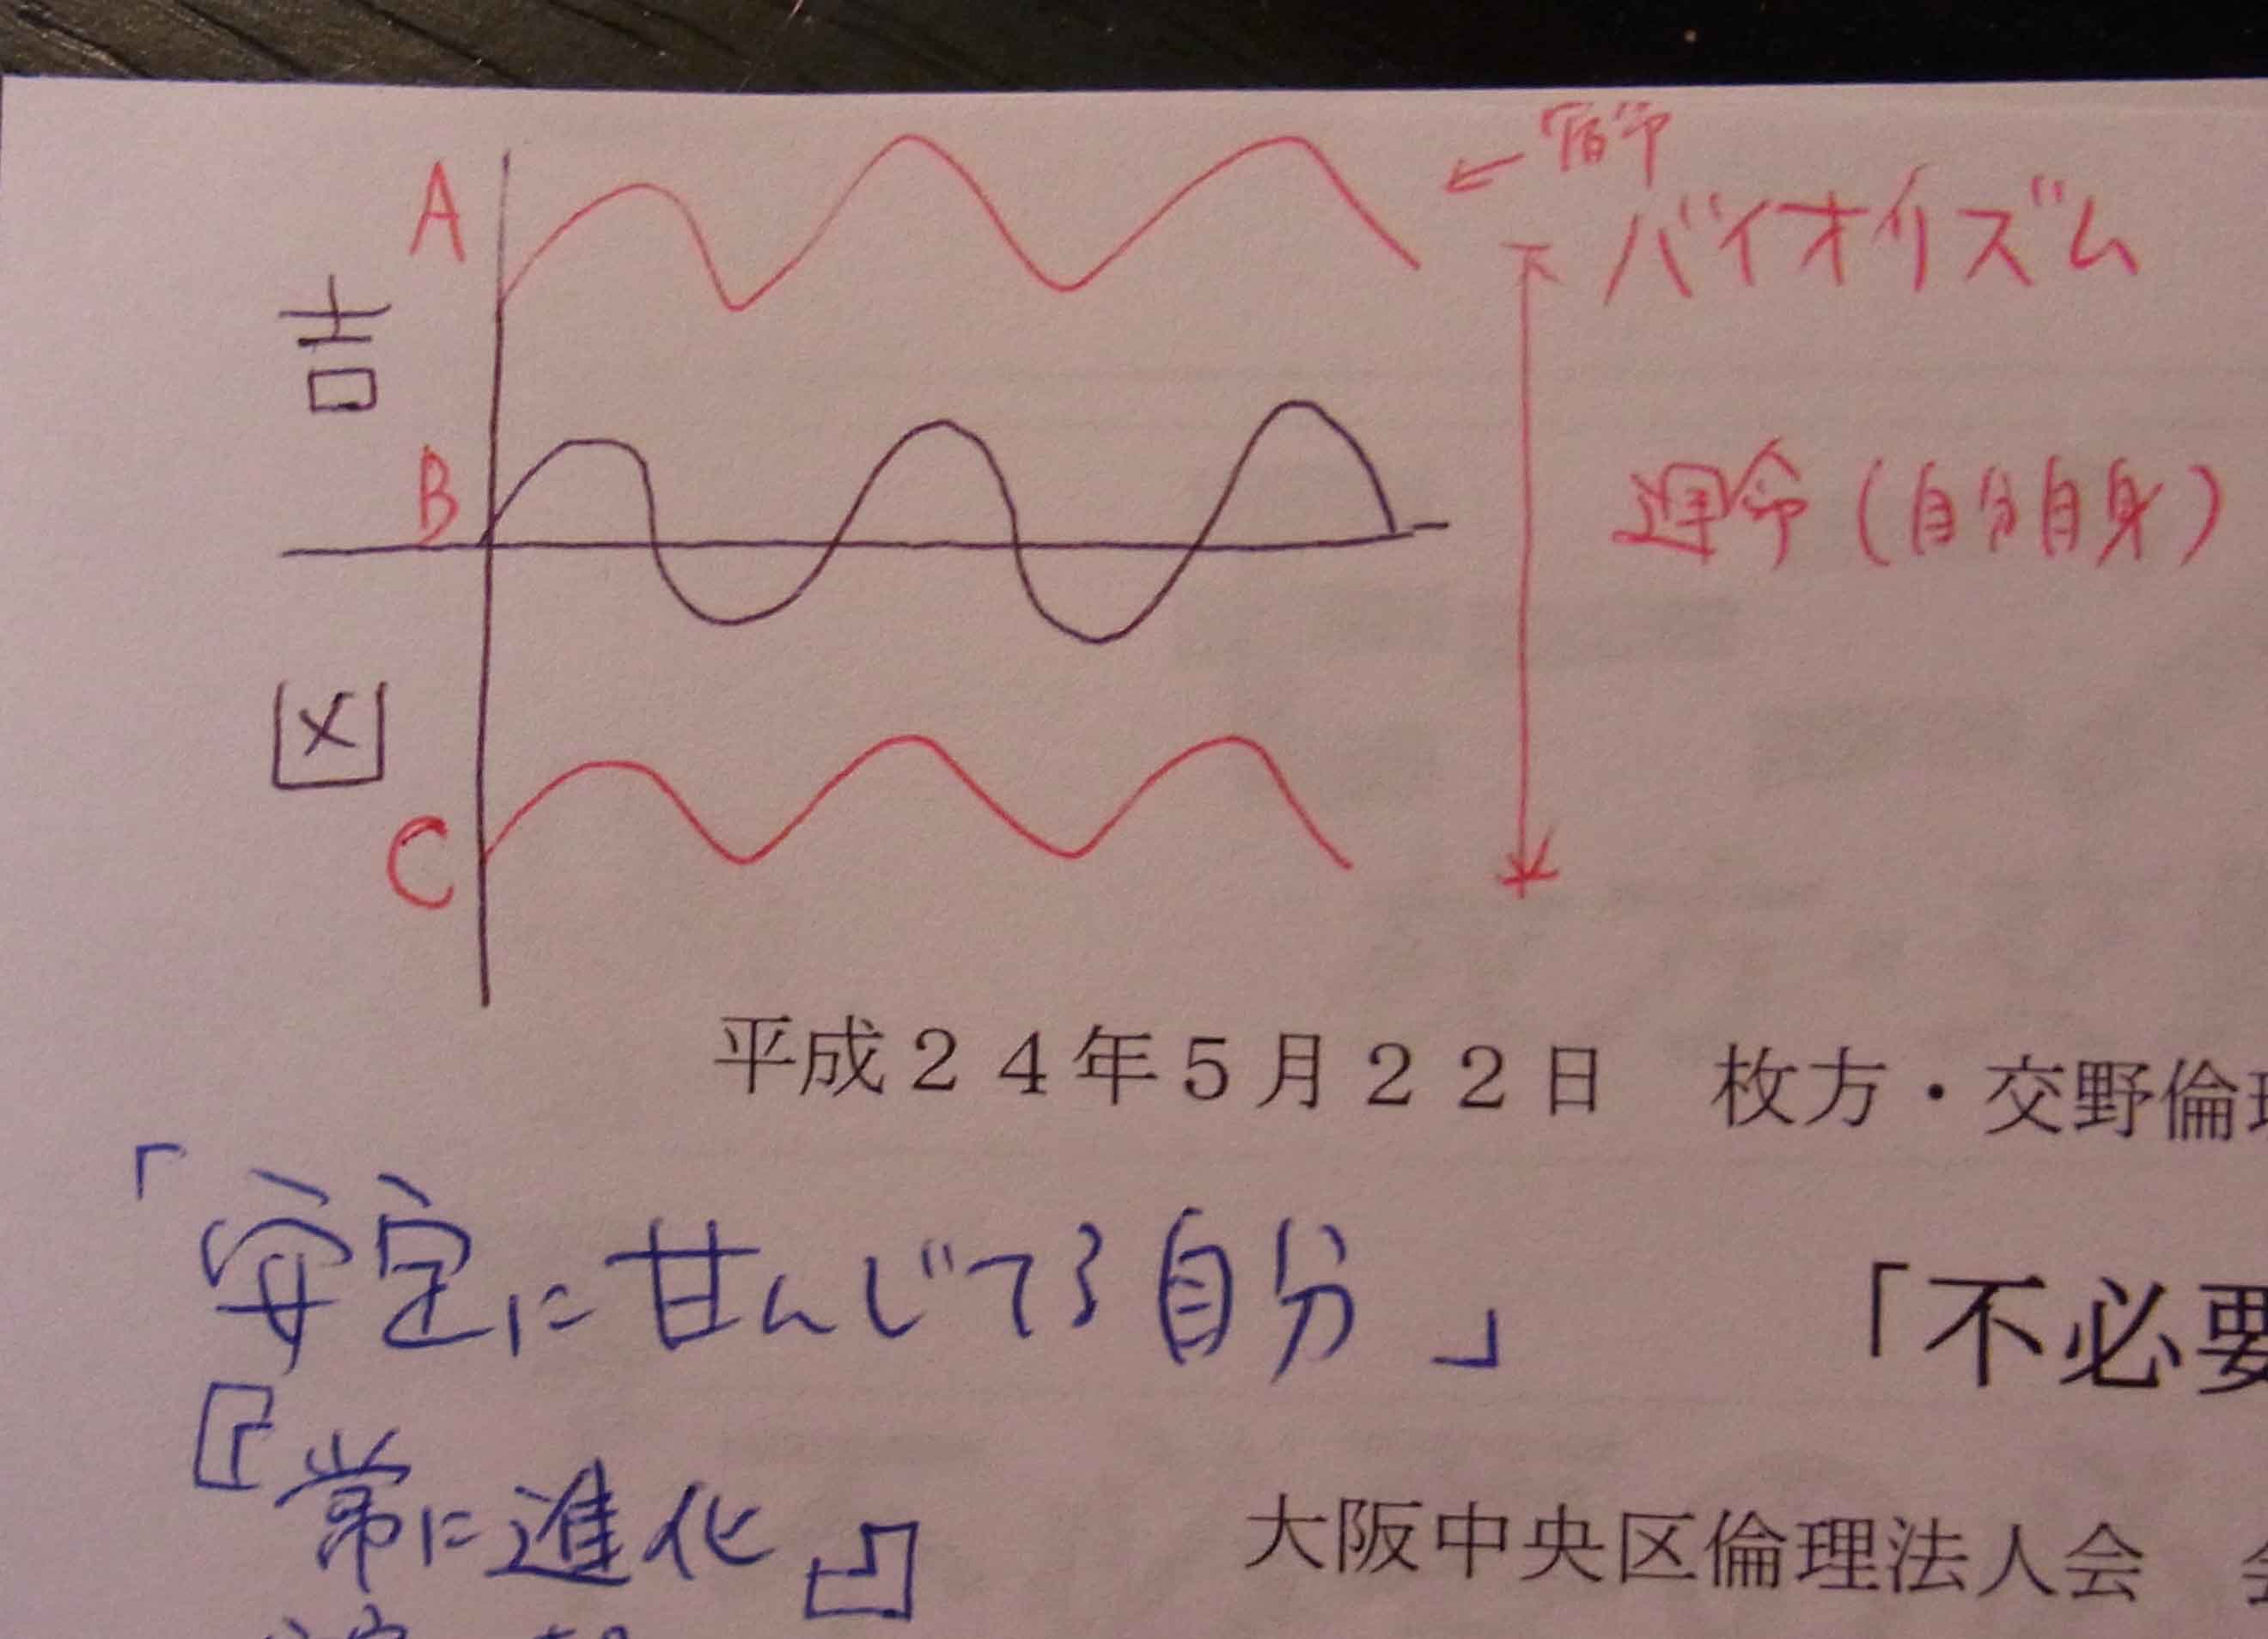 A
宿命
バイオリズム
吉
B
運命(自分自身)
凶
C
平成24年5月22日 枚方・交野倫理
「安定に甘んじてる自分」
「不必要
『常に進化』
大阪中央区倫理法人会